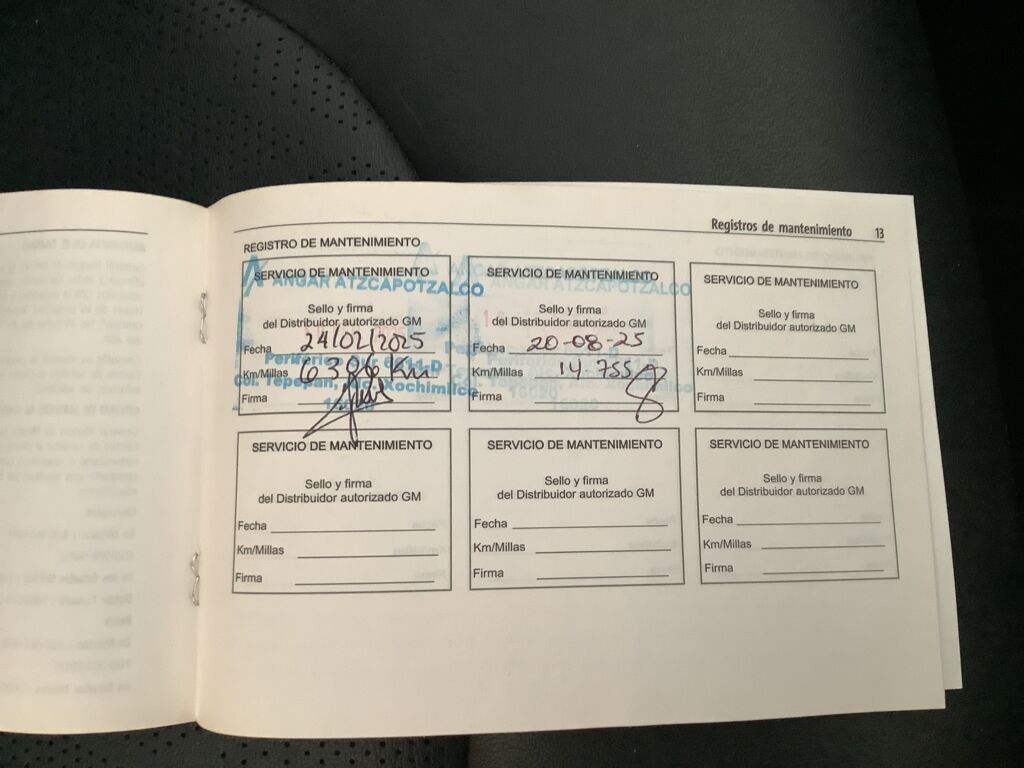 Registros de mantenimiento 13
REGISTRO DE MANTENIMIENTO
SERVICIO DE MANTENIMIENTO
ANGAR ATZCAPOTZALCO
Sello y firma
del Distribuidor autorizado GM
Fecha 24/02/2025
Km/Millas 6386 Km
Firma
Periferico Sur 6611-D
Col. Tepepan, Alc. Xochimilco
16020
SERVICIO DE MANTENIMIENTO
ANGAR ATZCAPOTZALCO
Sello y firma
del Distribuidor autorizado GM
Fecha 20-08-25
Km/Millas 14-755
Firma
16020
SERVICIO DE MANTENIMIENTO
Sello y firma
del Distribuidor autorizado GM
Fecha
Km/Millas
Firma
SERVICIO DE MANTENIMIENTO
Sello y firma
del Distribuidor autorizado GM
Fecha
Km/Millas
Firma
SERVICIO DE MANTENIMIENTO
Sello y firma
del Distribuidor autorizado GM
Fecha
Km/Millas
Firma
SERVICIO DE MANTENIMIENTO
Sello y firma
del Distribuidor autorizado GM
Fecha
Km/Millas
Firma